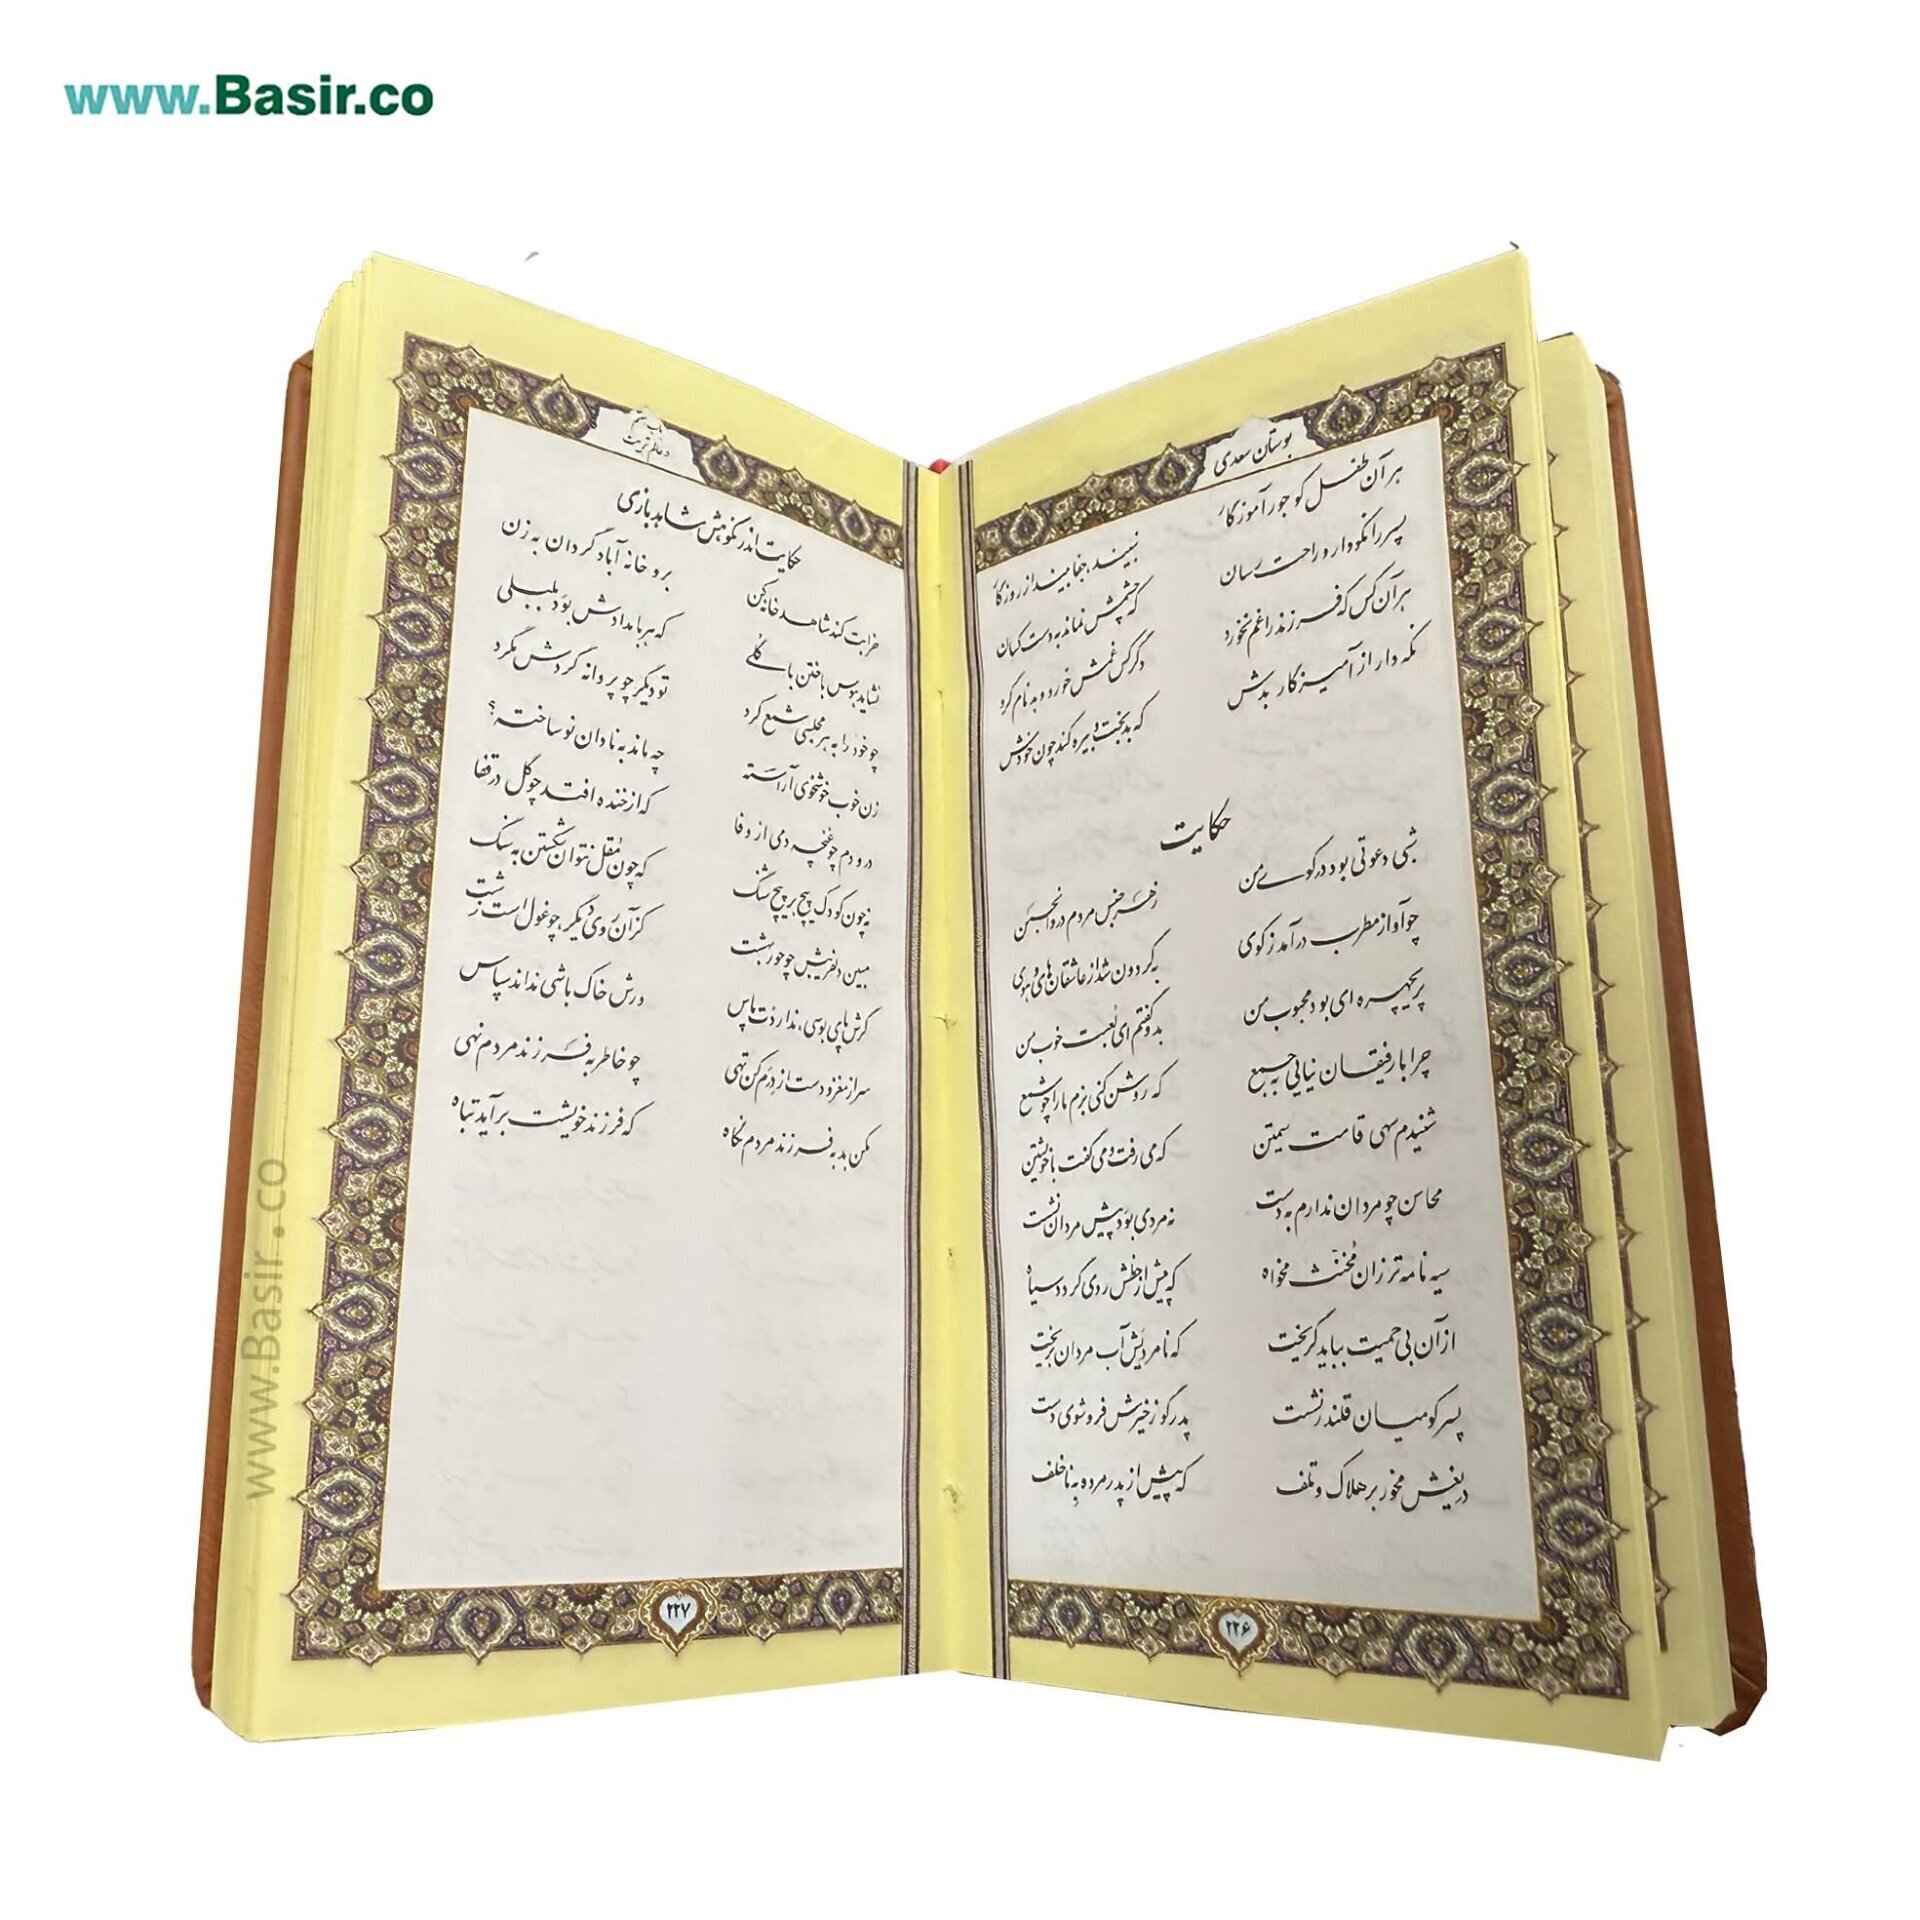 www.Basir.co
بوستان سعدی
هر آن طفل کو جور آموزگار
نبیند، جفا بیند از روزگار
پسر را نکو دار و راحت رسان
که چشمش نماند به دست کسان
هر آن کس که فرزند را غم نخورد
دگر کس غمش خورد و به نام کرد
نگه دار از آمیزگار بدش
که بدبخت و بیره کند چون خودش
حکایت
شبی دعوتی بود در کوی من
ز هر جنس مردم در و انجمن
چو آواز مطرب درآمد ز کوی
به گردون شد از عاشقان های و هوی
پریچهره ای بود محبوب من
بدو گفتم ای لعبت خوب من
چرا با رفیقان نیایی به جمع
که روشن کنی بزم ما را چو شمع
شنیدم سهی قامت سیمتن
که می رفت و می گفت با خویشتن
محاسن چو مردان ندارم به دست
نه مردی بود پیش مردان نشست
سیه نامه تر زان مخنث مخواه
که پیش از خطش روی گردد سیاه
از آن بی حمیت بباید گریخت
که نامردیش آب مردان بریخت
پسر کو میان قلندر نشست
پدر گو ز خیرش فرو شوی دست
دریغش مخور بر هلاک و تلف
که پیش از پدر مرده به ناخلف
۲۲۶
باب هفتم
در عالم تربیت
حکایت اندر نکوهش شاهد بازی
خرابت کند شاهد خانه کن
برو خانه آباد گردان به زن
نشاید هوس باختن با گلی
که هر بامدادش بود بلبلی
چو خود را به هر مجلسی شمع کرد
تو دیگر چو پروانه گردش مگرد
زن خوب خوشخوی آراسته
چه ماند به نادان نوساخته؟
درو دم چو غنچه دمی از وفا
که از خنده افتد چو گل در قفا
نه چون کودک پیچ بر پیچ شنگ
که چون مقل نتوان شکستن به سنگ
مبین دلفریبش چو حور بهشت
کز آن روی دیگر، چو غول است زشت
گرش پای بوسی، نداردت پاس
ورش خاک باشی نداند سپاس
سر از مغز و دست از درم کن تهی
چو خاطر به فرزند مردم نهی
مکن بد به فرزند مردم نگاه
که فرزند خویشت برآید تباه
۲۲۷
www.Basir.co